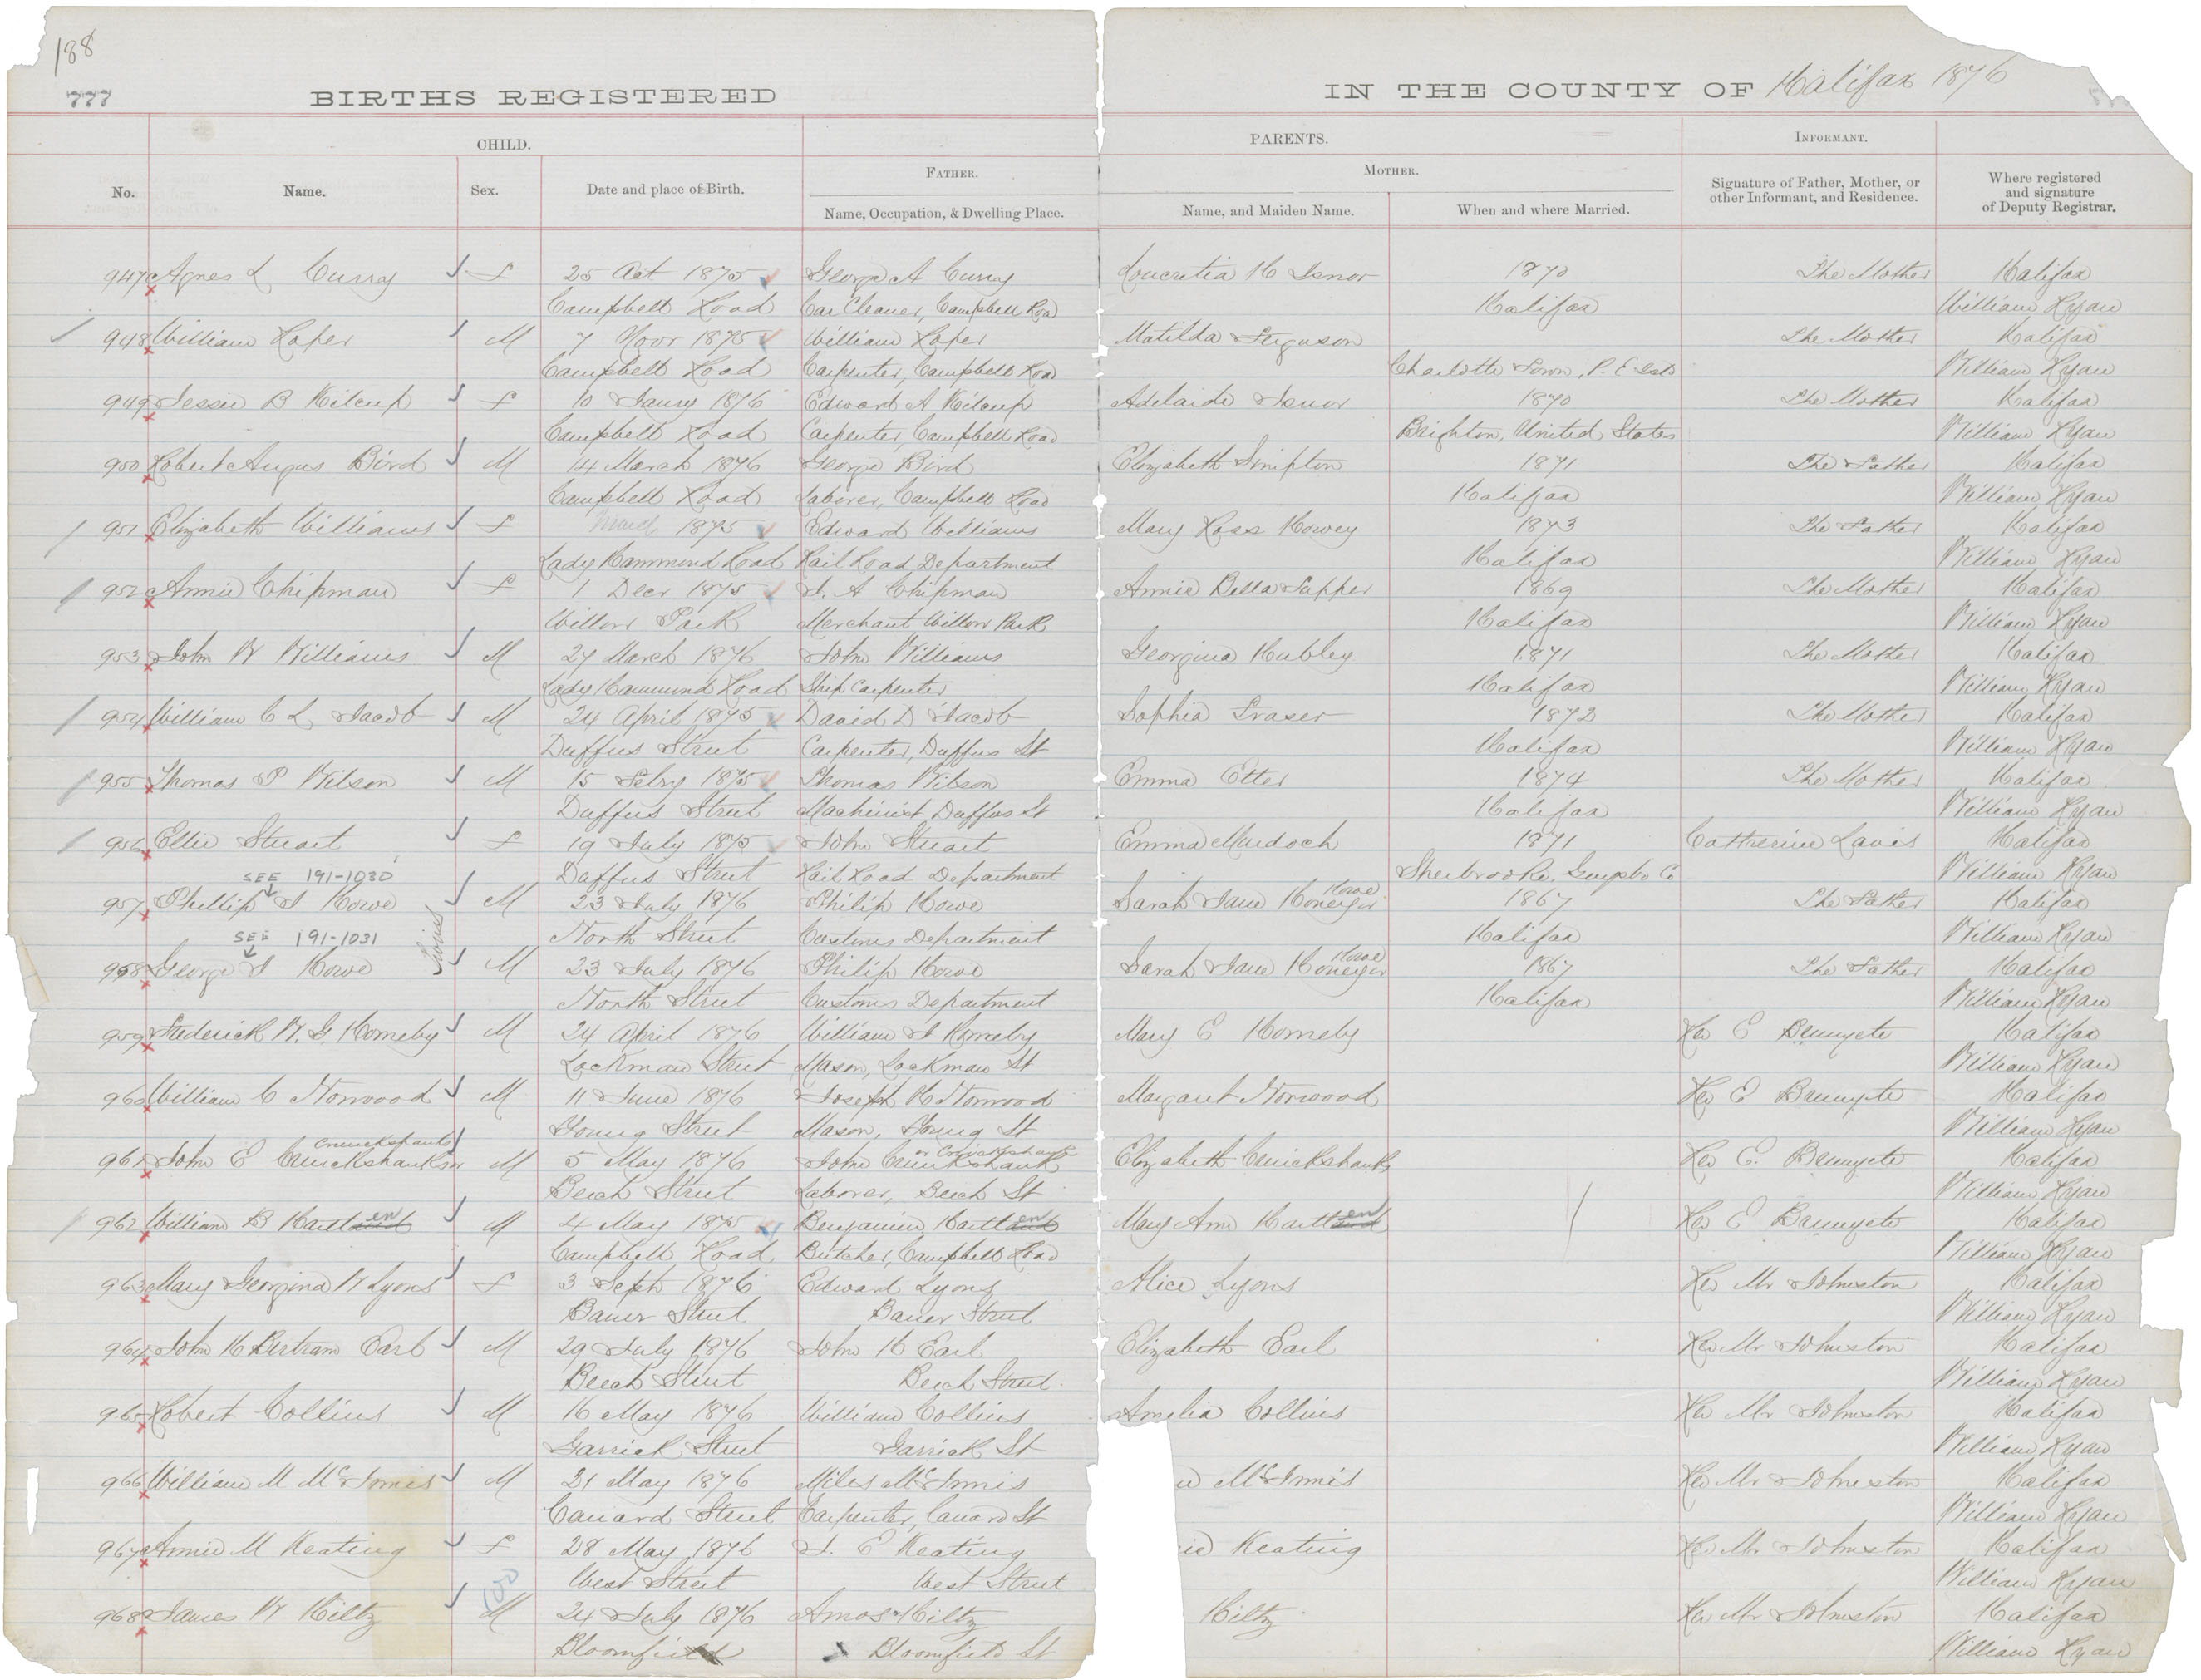 188
777
BIRTHS REGISTERED IN THE COUNTY OF Halifax 1876
CHILD. PARENTS. INFORMANT.
FATHER. MOTHER.
No. Name. Sex. Date and place of Birth. Name, Occupation, & Dwelling Place. Name, and Maiden Name. When and where Married. Signature of Father, Mother, or other Informant, and Residence. Where registered and signature of Deputy Registrar.
947 Agnes L Curry f 25 Oct 1875 George A Curry Loucretia H Isnor 1870 The Mother Halifax
Campbell Road Car Cleaner, Campbell Road Halifax William Ryan
948 William Roper M 7 Novr 1875 William Roper Matilda Ferguson The Mother Halifax
Campbell Road Carpenter, Campbell Road Charlotte Town, P. E Isld William Ryan
949 Jessie B Kilcup f 10 Jany 1876 Edward A Kilcup Adelaide Isnor 1870 The Mother Halifax
Campbell Road Carpenter, Campbell Road Brighton, United States William Ryan
950 Robert Angus Bird M 14 March 1876 George Bird Elizabeth Simpton 1871 The Father Halifax
Campbell Road Laborer, Campbell Road Halifax William Ryan
951 Elizabeth Williams f March 1875 Edward Williams Mary Ross Howey 1873 The Father Halifax
Lady Hammond Road Rail Road Department Halifax William Ryan
952 Annie Chipman f 1 Decr 1875 J. A Chipman Annie Bella Tupper 1869 The Mother Halifax
Willow Park Merchant Willow Park Halifax William Ryan
953 John W Williams M 27 March 1876 John Williams Georgina Hubley 1871 The Mother Halifax
Lady Hammond Road Ship Carpenter Halifax William Ryan
954 William C L Jacob M 24 April 1875 David D Jacob Sophia Fraser 1872 The Mother Halifax
Duffus Street Carpenter, Duffus St Halifax William Ryan
955 Thomas P Wilson M 15 Febry 1875 Thomas Wilson Emma Etter 1874 The Mother Halifax
Duffus Street Machinist, Duffus St Halifax William Ryan
956 Ellie Stuart f 19 July 1875 John Stuart Emma Murdoch 1871 Catherine Davis Halifax
SEE 191-1030 Duffus Street Rail Road Department Sherbrooke, Guysbo Co William Ryan
957 Phillip J Howe M 23 July 1876 Philip Howe Sarah Jane Howe 1867 The Father Halifax
SEE 191-1031 Twins North Street Customs Department Halifax William Ryan
958 George J Howe M 23 July 1876 Philip Howe Sarah Jane Howe 1867 The Father Halifax
North Street Customs Department Halifax William Ryan
959 Frederick W. G. Horneby M 24 April 1876 William J Horneby Mary E Horneby Rev E Halifax
Lockman Street Mason, Lockman St William Ryan
960 William C Norwood M 11 June 1876 Joseph H Norwood Margaret Norwood Rev E Halifax
Young Street Mason, Young St William Ryan
Cruickshanks or Cruickshank
961 John E Cruickshanks or M 5 May 1876 John Cruikshank Elizabeth Cruickshanks Rev E. Halifax
Beech Street Laborer, Beech St William Ryan
962 William B Hartlen M 4 May 1875 Benjamin Hartlen Mary Ann Hartlen Rev E Halifax
Campbell Road Butcher, Campbell Road William Ryan
963 Mary Georgina W Lyons f 3 Sept 1876 Edward Lyons Alice Lyons Rev Mr Johnston Halifax
Bauer Street Bauer Street William Ryan
964 John H Bertram Earl M 29 July 1876 John H Earl Elizabeth Earl Rev Mr Johnston Halifax
Beech Street Beech Street William Ryan
965 Robert Collins M 16 May 1876 William Collins Amelia Collins Rev Mr Johnston Halifax
Garrick Street Garrick St William Ryan
966 William M McInnis M 21 May 1876 Miles McInnis McInnis Rev Mr Johnston Halifax
Cunard Street Carpenter, Cunard St William Ryan
967 Annie M Keating f 28 May 1876 J. E Keating Keating Rev Mr Johnston Halifax
West Street West Street William Ryan
100
968 James W Hiltz M 24 July 1876 Amos Hiltz Hiltz Rev Mr Johnston Halifax
Bloomfield Bloomfield St William Ryan